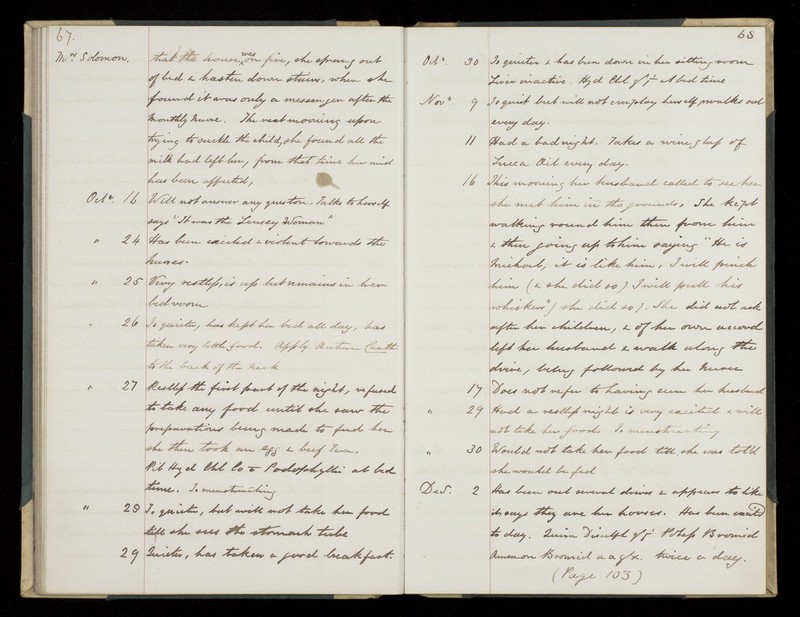 67.
Mrs Solomon. that the house was on fire, she sprang out
of bed & hasten down stairs, when she
found it was only a messenger after the
Monthly Nurse. The next morning upon
trying to suckle the child, she found all the
milk had left her, from that time her mind
has been affected,
Octr. 16 Will not answer any question. Talks to herself
says "It was the Linsey Woman"
" 24 Has been excited & violent towards the
nurses.
" 25 Very restless, is up but remains in her
bedroom
" 26 Is quieter, has kept her bed all day, has
taken very little food. Apply
to the back of the neck
" 27 Restless the first part of the night, refused
to take any food until she saw the
preparations being made to feed her
she then took an egg & beef Tea.
Pil Hyd Chl Co Podophylli at bed
time. Is menstruating
" 28 Is quieter, but will not take her food
till she sees the stomach tube
29 Quieter, has taken a good breakfast.
68
Octr. 30 Is quieter & has been down in her sitting room
Liver inactive. Hyd Chl at bed time
Novr. 9 Is quiet but will not employ herself, walks out
every day.
11 Had a bad night. Takes a wine glass of
Lucca Oil every day.
16 This morning her husband called to see her
she met him in the grounds, She kept
walking round him then from him
& then going up to him saying "He is
Michael, it is like him, I will pinch
him (& she did so) I will pull his
whiskers") she did so). She did not ask
after her children, & of her own accord
left her husband & walk along the
drive, being followed by her Nurse
17 Does not refer to having seen her husband
" 29 Had a restless night is very excited & will
not take her food. Is menstruating
" 30 Would not take her food till she was told
she would be fed
Decr. 2 Has been out several drives & appears to like
it, says they are her horses. Has been excited
to day. Quin Disulph Potass Bromid
Ammon Bromid a a gr x. twice a day.
(Page 103)